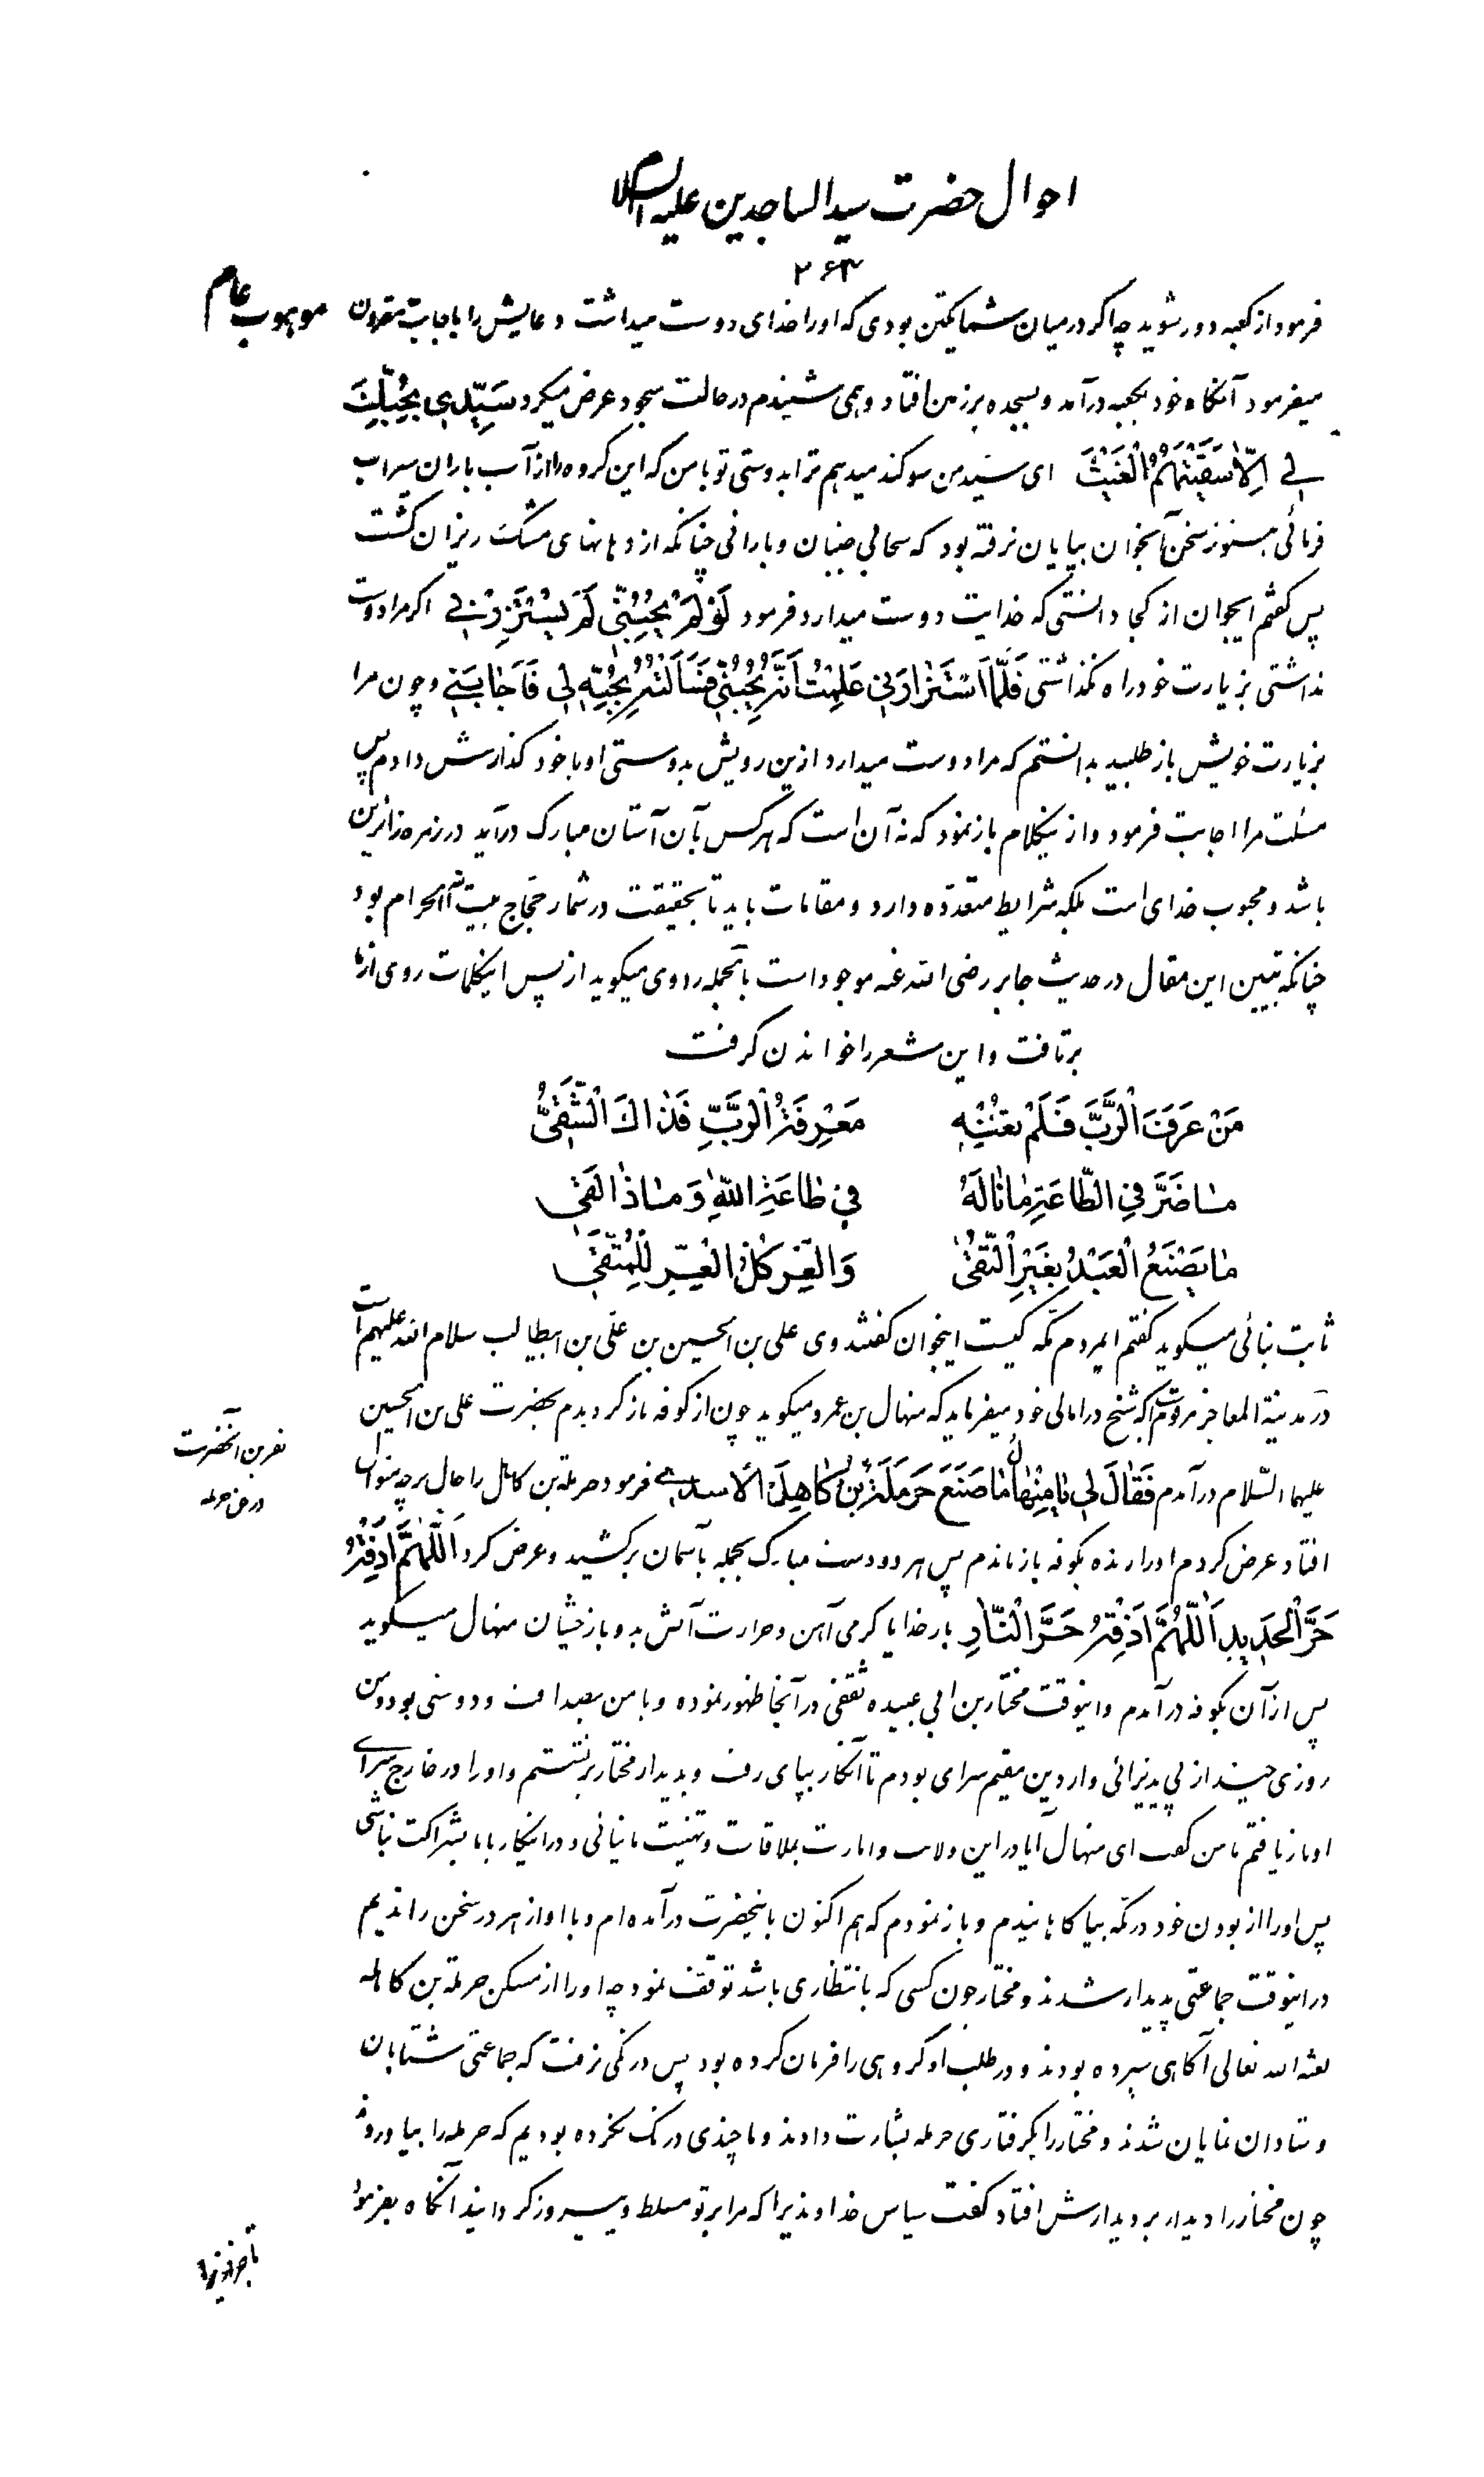 احوال حضرت سید الساجدین علیه السلام
۲۶۳
فرمود از کعبه دور شوید چه اگر در میان شما یکتن بودی که او را خدای دوست میداشت دعایش را باجابت مقرون
موهوب عام
میفرمود آنگاه خود بکعبه درآمد و بسجده بر زمین افتاد و همی شنیدم در حالت سجود عرض میکرد سَیِّدِی بِحُبِّکَ
لِی اِلّا سَقَیْتَهُمُ الْغَیْثَ ای سید من سوگند میدهم ترا بدوستی تو با من که این گروه را از آب باران سیراب
فرمائی هنوز سخن آنجوان بپایان نرفته بود که سحابی جنبان و بارانی چنانکه از دهانهای مشک ریزان گشت
پس گفتم ایجوان از کجا دانستی که خدایت دوست میدارد فرمود لَوْ لَمْ یُحِبَّنِی لَمْ یَسْتَزِرْنِی اگر مرا دوست
نداشتی بزیارت خود راه نگذاشتی فَلَمَّا اسْتَزارَنِی عَلِمْتُ اَنَّهُ یُحِبُّنِی فَسَاَلْتُهُ بِحُبِّهِ لِی فَاَجابَنِی و چون مرا
بزیارت خویش باز طلبید بدانستم که مرا دوست میدارد ازین رویش بدوستی او با خود گذارش دادم پس
مسئلت مرا اجابت فرمود و از ینکلام باز نمود که نه آن است که هر کس بآن آستان مبارک درآید در زمره زائرین
باشد و محبوب خدای است بلکه شرایط متعدده دارد و مقامات باید تا بحقیقت در شمار حجاج بیت الله الحرام بود
چنانکه تبیین این مقال در حدیث جابر رضی الله عنه موجود است بالجمله راوی میگوید از پس اینکلمات روی از ما
برتافت و این شعر را خواندن گرفت
مَنْ عَرَفَ الرَّبَّ فَلَمْ تُغْنِهِ مَعْرِفَةُ الرَّبِّ فَذاكَ الشَّقِیُّ
ما ضَرَّ فِی الطّاعَةِ ما نالَهُ فِی طاعَةِ اللّهِ وَ ماذا لَقِیَ
ما یَصْنَعُ الْعَبْدُ بِغَیْرِ التُّقی وَ الْعِزُّ کُلُّ الْعِزِّ لِلْمُتَّقِی
ثابت بنانی میگوید گفتم ایمردم مکه کیست اینجوان گفتند وی علی بن الحسین بن علی بن ابیطالب سلام الله علیهم است
در مدینة المعاجز مرویست که شیخ در امالی خود میفرماید که منهال بن عمرو میگوید چون از کوفه باز گردیدم بحضرت علی بن الحسین
نفرین آنحضرت
در حق حرمله
علیهما السلام درآمدم فَقالَ لِی یا مِنْهالُ ما صَنَعَ حَرْمَلَةُ بْنُ کاهِلِ الْاَسَدِی فرمود حرملة بن کاهل را حال بر چه منوال
افتاد عرض کردم او را زنده بکوفه باز ماندم پس هر دو دست مبارک بجمله بآسمان برکشید و عرض کرد اَللّهُمَّ اَذِقْهُ
حَرَّ الْحَدِیدِ اَللّهُمَّ اَذِقْهُ حَرَّ النّارِ بار خدایا گرمی آهن و حرارت آتش بدو باز چشان منهال میگوید
پس از آن بکوفه درآمدم و اینوقت مختار بن ابی عبیده ثقفی در آنجا ظهور نموده و با من بصداقت و دوستی بود و من
روزی چند از پی پذیرائی واردین مقیم سرای بودم تا آنکار بپای رفت و بدیدار مختار برنشستم و او را در خارج سرای
او باز یافتم با من گفت ای منهال آیا در این ولایت و امارت بملاقات و تهنیت ما نیائی و در اینکار با ما بشراکت نباشی
پس او را از بودن خود در مکه بیاگاهانیدم و باز نمودم که هم اکنون باینحضرت درآمده ام و با او از هر در سخن راندیم
در اینوقت جماعتی پدیدار شدند و مختار چون کسی که بانتظاری باشد توقف نمود چه او را از مسکن حرملة بن کاهله
لعنه الله تعالی آگاهی سپرده بودند و در طلب او گروهی را فرمان کرده بود پس درنگی نرفت که جماعتی شتابان
و شادان نمایان شدند و مختار را بگرفتاری حرمله بشارت دادند و ما چندی درنگ نکرده بودیم که حرمله را بیاوردند
چون مختار را دیدار بر دیدارش افتاد گفت سپاس خداوندیرا که مرا بر تو مسلط و پیروز گردانید آنگاه بفرمود